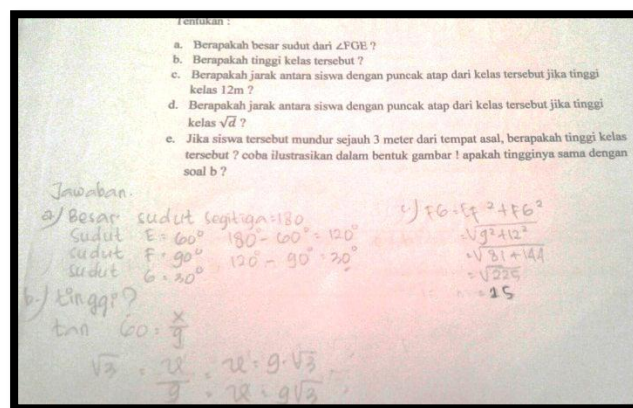 Tentukan :
a. Berapakah besar sudut dari ∠FGE ?
b. Berapakah tinggi kelas tersebut ?
c. Berapakah jarak antara siswa dengan puncak atap dari kelas tersebut jika tinggi
kelas 12m ?
d. Berapakah jarak antara siswa dengan puncak atap dari kelas tersebut jika tinggi
kelas √d ?
e. Jika siswa tersebut mundur sejauh 3 meter dari tempat asal, berapakah tinggi kelas
tersebut ? coba ilustrasikan dalam bentuk gambar ! apakah tingginya sama dengan
soal b ?
Jawaban.
a) Besar sudut segitiga = 180
Sudut E = 60° 180° - 60° = 120°
sudut F = 90° 120° - 90° = 30°
sudut G = 30°
b.) tinggi?
tan 60 = x/9
√3 = x/9 = x = 9·√3
= x = 9√3
c) FG = EF² + FG²
= √9² + 12²
= √81 + 144
= √225
= 15